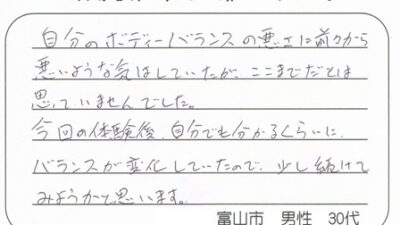 自分のボディーバランスの悪さに前々から
悪いような気はしていたが、ここまでだとは
思っていませんでした。
今回の体験後、自分でも分かるくらいに、
バランスが変化していたので、少し続けて
みようかと思います。
富山市 男性 30代